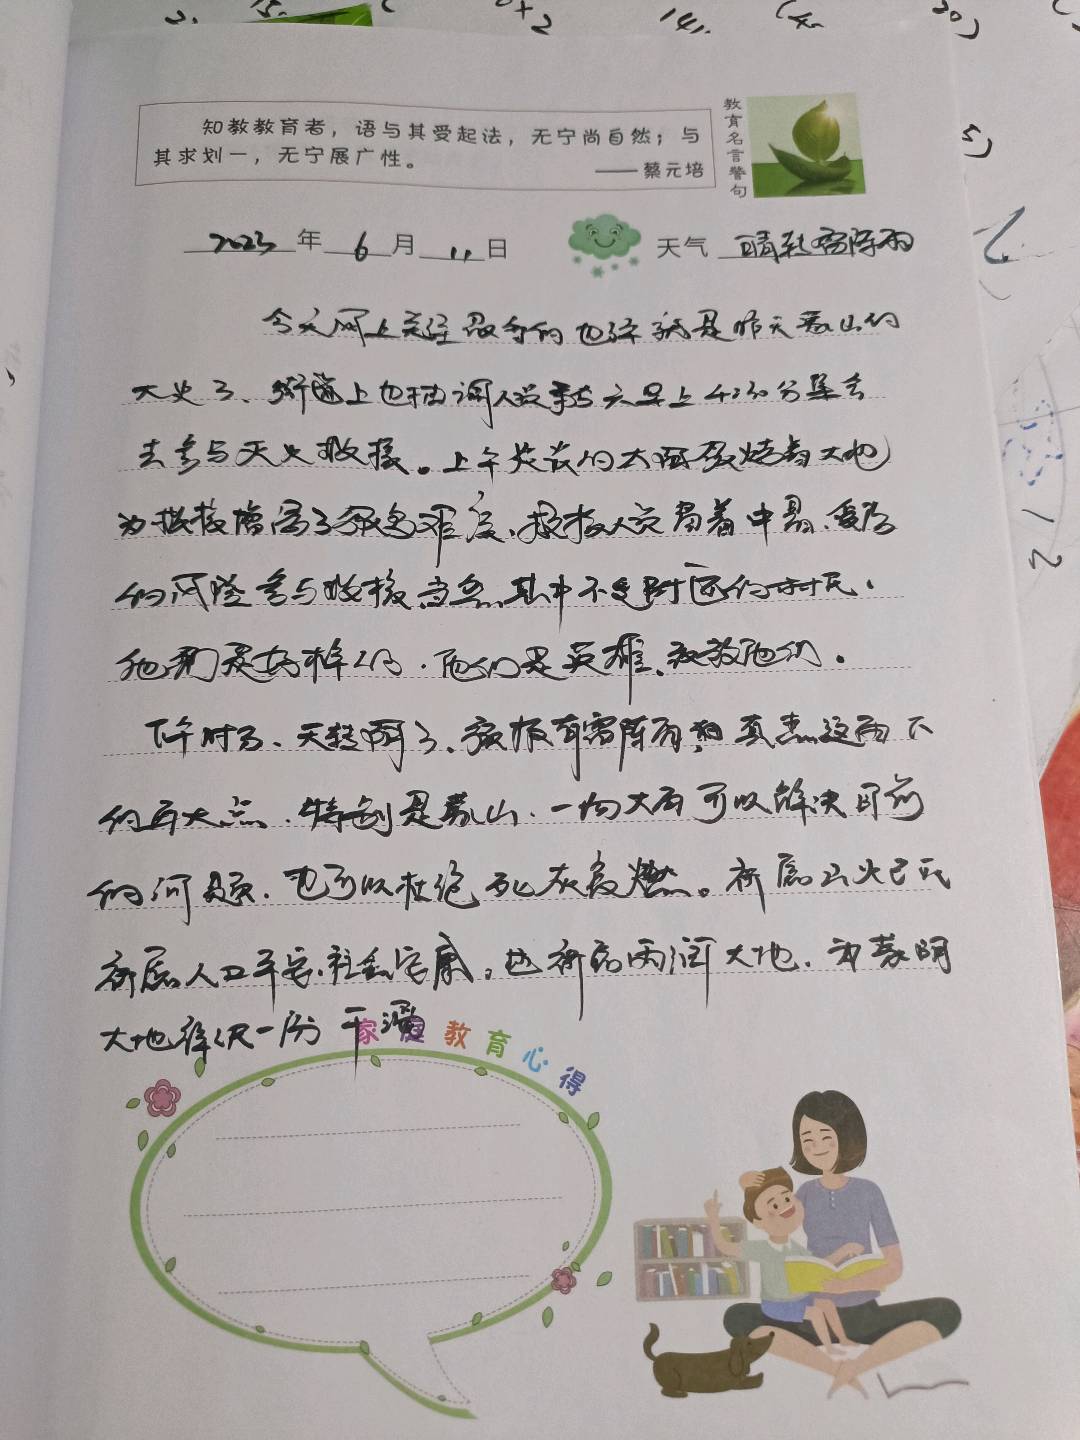 知教教育者，语与其受起法，无宁尚自然；与
其求划一，无宁展广性。
——蔡元培
教育名言警句
2023年6月11日
天气 晴转雷阵雨
今天网上关注最多的也许就是昨天蒙山的
大火了、街道上也抽调人员 六早上4:30分集合
去参与灭火救援。上午炎炎的太阳炙烤着大地
为救援增高了 难度、救援人员冒着中暑、
的风险参与救援当然其中不乏附近的村民.
他们是好样的.他们是英雄、致敬他们。
下午时分、天转阴了、预报有雷阵雨 真悫这雨下
的再大点.特别是蒙山.一场大雨可以解决目前
的问题.也可以杜绝死灰复燃。祈愿山火已
祈愿人口平安.社会安康.也祈愿雨润大地.为蒙阴
大地降伏一份干涸
家庭教育心得